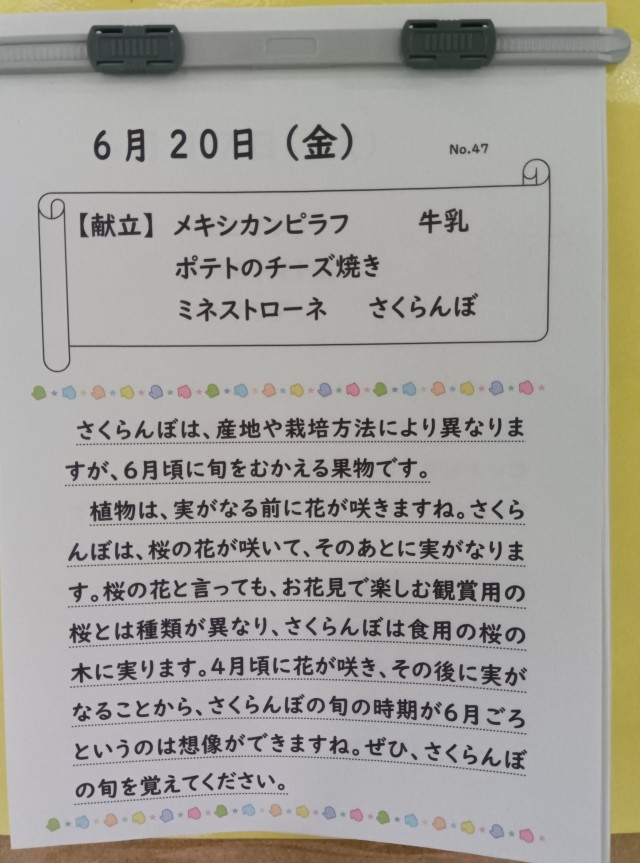 6月20日（金） No.47
【献立】 メキシカンピラフ 牛乳
ポテトのチーズ焼き
ミネストローネ さくらんぼ
さくらんぼは、産地や栽培方法により異なりま
すが、6月頃に旬をむかえる果物です。
植物は、実がなる前に花が咲きますね。さくら
んぼは、桜の花が咲いて、そのあとに実がなりま
す。桜の花と言っても、お花見で楽しむ観賞用の
桜とは種類が異なり、さくらんぼは食用の桜の
木に実ります。4月頃に花が咲き、その後に実が
なることから、さくらんぼの旬の時期が6月ごろ
というのは想像ができますね。ぜひ、さくらんぼ
の旬を覚えてください。